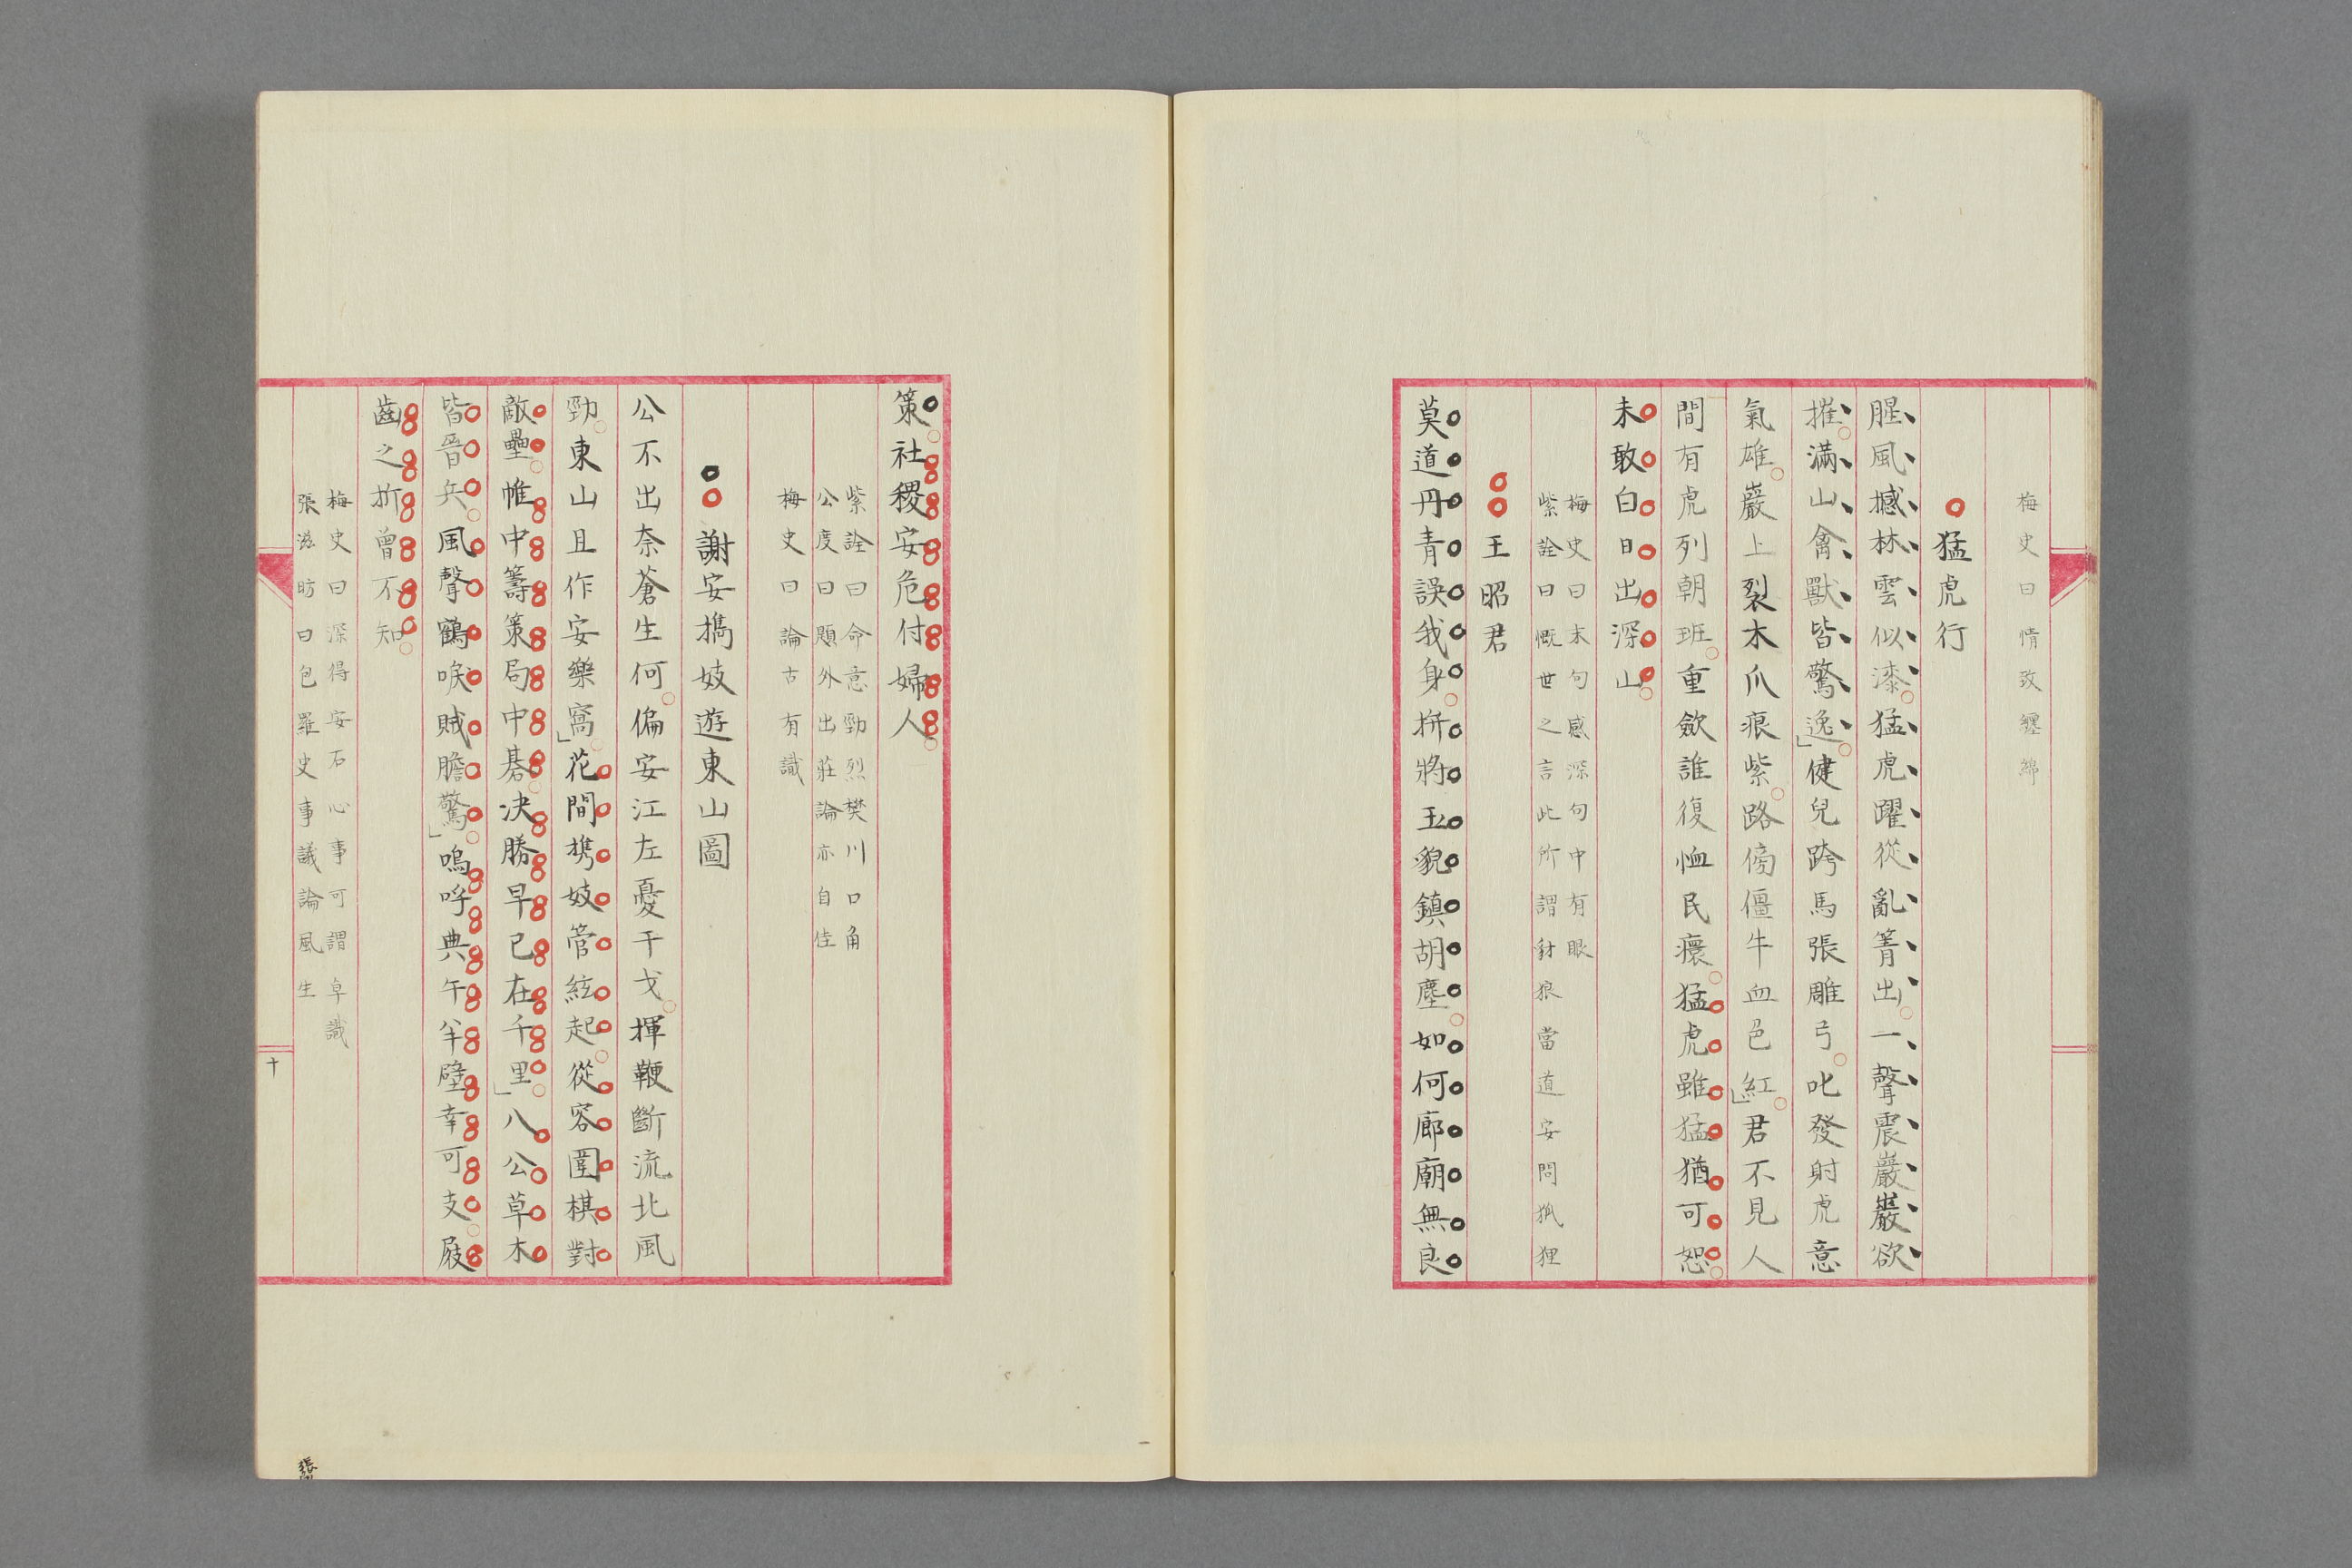 梅史曰情致纏綿
猛虎行
腥風撼林雲似漆猛虎躍從亂箐出一聲震巖巖欲
摧滿山禽獸皆驚逸健兒跨馬張雕弓叱發射虎意
氣雄巖上裂木爪痕紫路傍僵牛血邑紅君不見人
間有虎列朝班重斂誰復恤民瘝猛虎雖猛猶可恕
未敢白日出深山
梅史曰末句感深句中有眼
紫詮曰慨世之言此所謂豺狼當道安問狐狸
王昭君
莫道丹青誤我身拚將玉貌鎮胡塵如何廊廟無良
策社稷安危付婦人
紫詮曰命意勁烈樊川口角
公度曰題外出莊論亦自佳
梅史曰論古有識
謝安擕妓遊東山圖
公不出奈蒼生何偏安江左憂干戈揮鞭斷流北風
勁東山且作安樂窩花間擕妓管絃起從容圍棋對
敵壘帷中籌策局中碁決勝早已在千里八公草木
皆晉兵風聲鶴唳賊膽驚嗚呼典午半壁幸可支屐
齒之折曾不知
梅史曰深得安石心事可謂卓識
張滋昉曰包羅史事議論風生
十
張